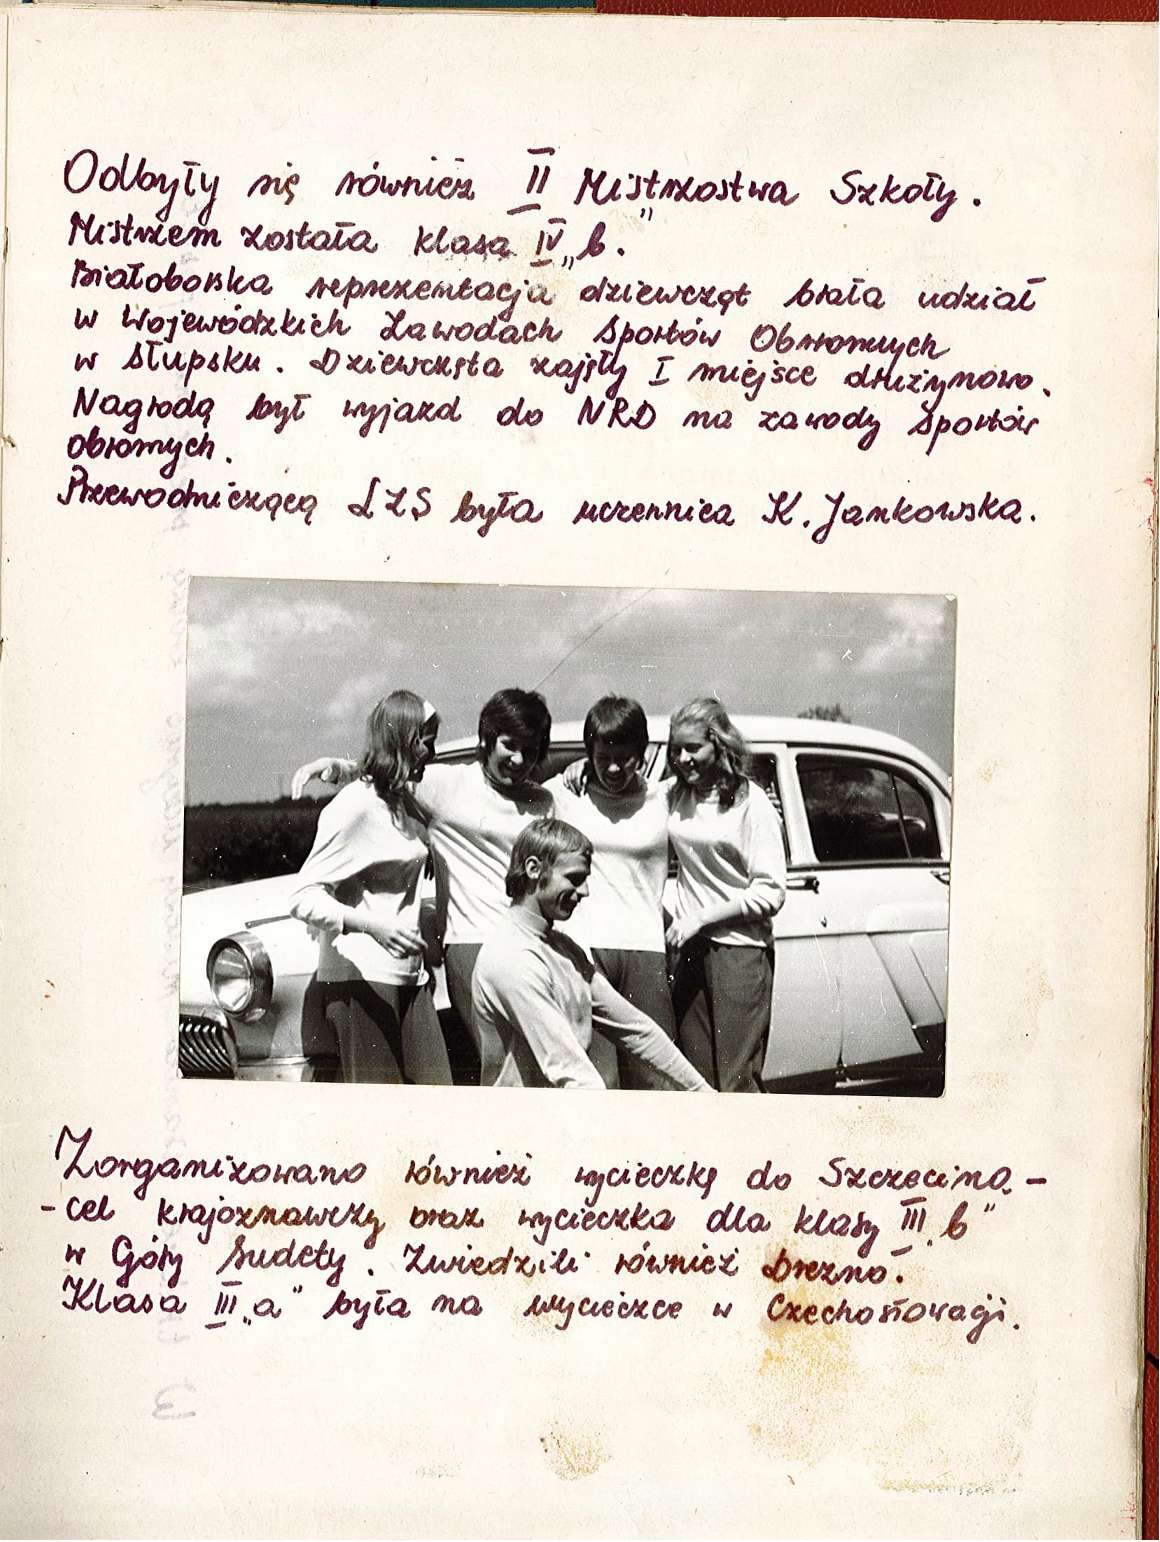 Odbyły się również II Mistrzostwa Szkoły.
Mistrzem została klasa IV „b."
Białoborska reprezentacja dziewcząt brała udział
w Wojewódzkich Zawodach Sportów Obronnych
w Słupsku. Dziewczęta zajęły I miejsce drużynowo.
Nagrodą był wyjazd do NRD na zawody Sportów
obronnych.
Przewodniczącą LZS była uczennica K. Jankowska.
Zorganizowano również wycieczkę do Szczecina -
- cel krajoznawczy oraz wycieczka dla klasy III „b"
w Góry Sudety. Zwiedzili również Drezno.
Klasa III „a" była na wycieczce w Czechosłowacji.